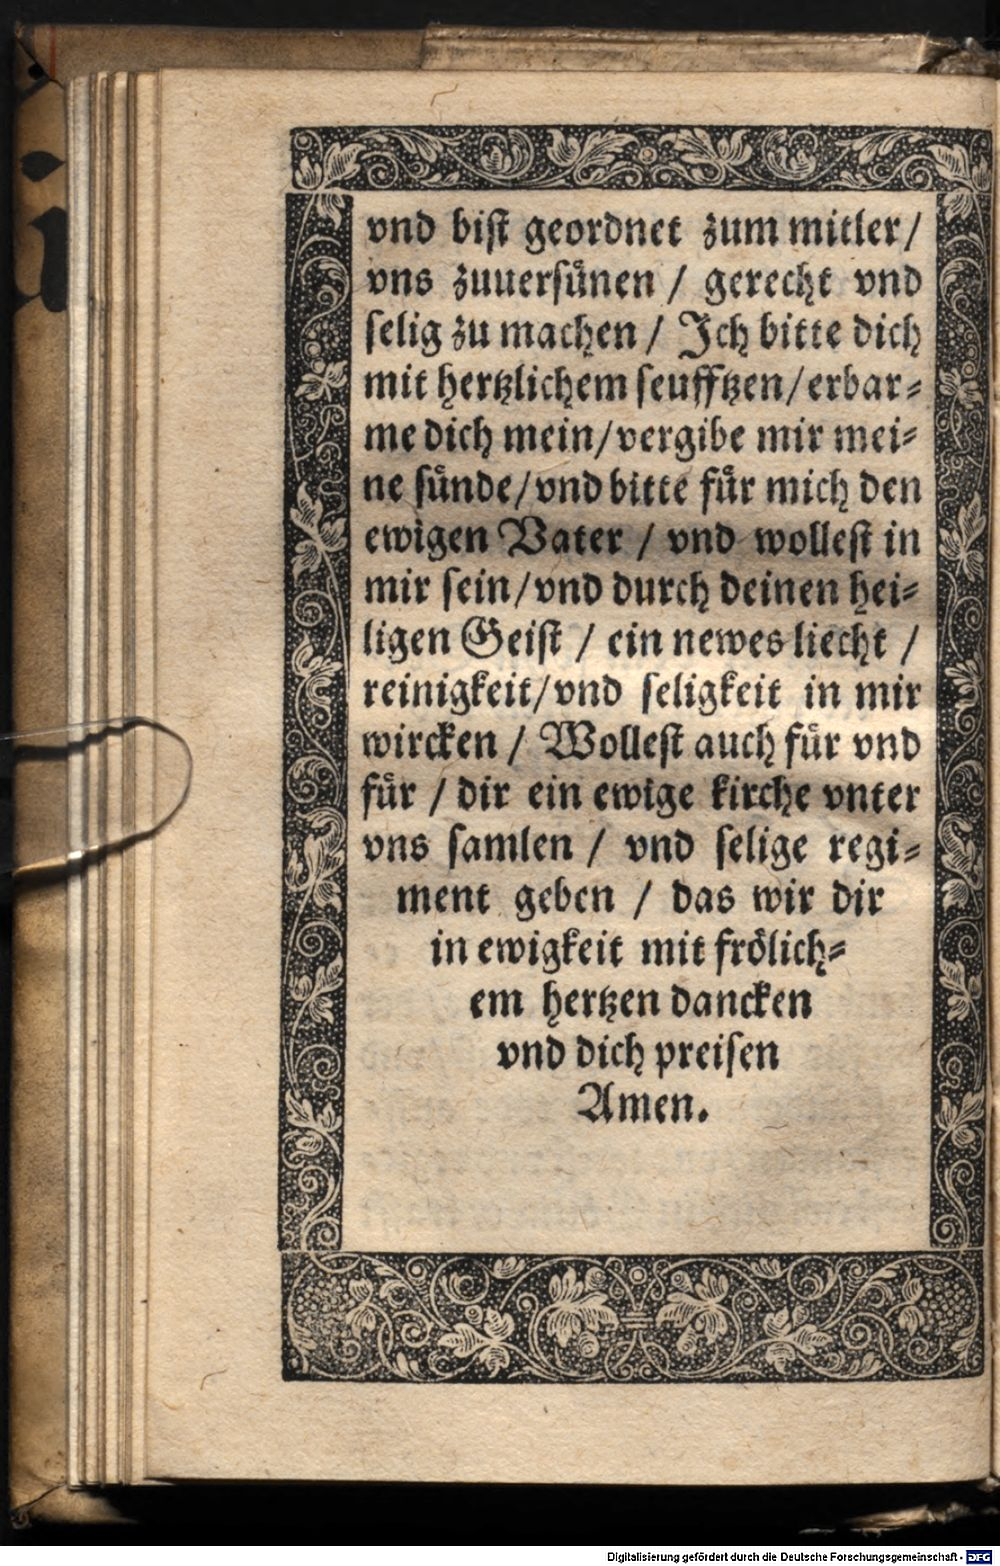 vnd bist geordnet zum mitler/
vns zuuersünen / gerecht vnd
selig zu machen / Ich bitte dich
mit hertzlichem seufftzen/erbar-
me dich mein/vergibe mir mei-
ne sünde/vnd bitte für mich den
ewigen Vater / vnd wollest in
mir sein/vnd durch deinen hei-
ligen Geist / ein newes liecht /
reinigkeit/vnd seligkeit in mir
wircken / Wollest auch für vnd
für / dir ein ewige kirche vnter
vns samlen / vnd selige regi-
ment geben / das wir dir
in ewigkeit mit frölich-
em hertzen dancken
vnd dich preisen
Amen.
Digitalisierung gefördert durch die Deutsche Forschungsgemeinschaft - DFG